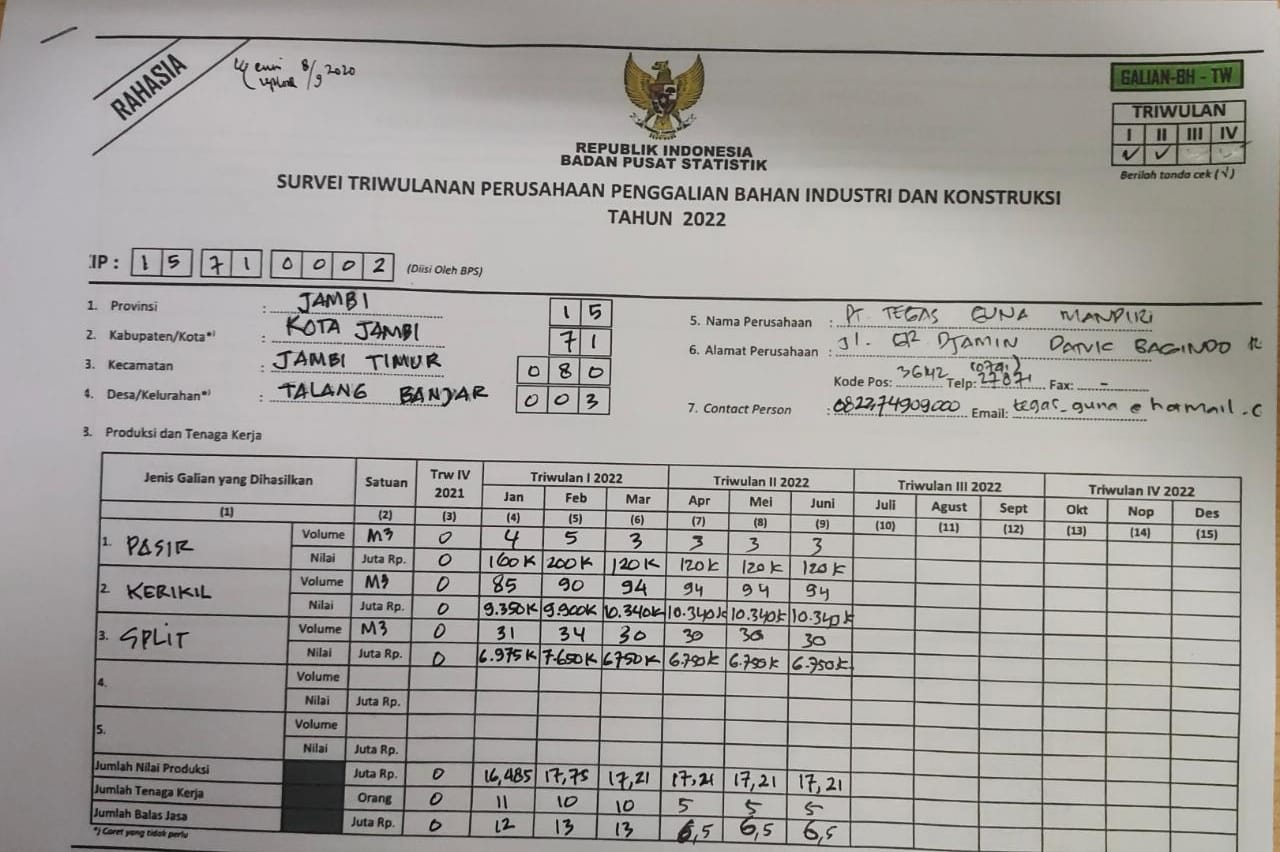 RAHASIA
8/9 2020
GALIAN-BH - TW
TRIWULAN
I II III IV
✓ ✓
Berilah tanda cek (√)
REPUBLIK INDONESIA
BADAN PUSAT STATISTIK
SURVEI TRIWULANAN PERUSAHAAN PENGGALIAN BAHAN INDUSTRI DAN KONSTRUKSI
TAHUN 2022
IP : 1 5 7 1 0 0 0 2 (Diisi Oleh BPS)
1. Provinsi : JAMBI 1 5
2. Kabupaten/Kota*) : KOTA JAMBI 7 1
3. Kecamatan : JAMBI TIMUR 0 8 0
4. Desa/Kelurahan*) : TALANG BANJAR 0 0 3
5. Nama Perusahaan : PT. TEGAS GUNA MANDIRI
6. Alamat Perusahaan : Jl. GR DJAMIN DATUK BAGINDO
Kode Pos: 3642 Telp: (0741) 27871 Fax: -
7. Contact Person : 082374909000 Email: tegas_guna@hotmail.c
3. Produksi dan Tenaga Kerja
Jenis Galian yang Dihasilkan Satuan Trw IV 2021 Triwulan I 2022 Triwulan II 2022 Triwulan III 2022 Triwulan IV 2022
Jan Feb Mar Apr Mei Juni Juli Agust Sept Okt Nop Des
(1) (2) (3) (4) (5) (6) (7) (8) (9) (10) (11) (12) (13) (14) (15)
1. PASIR Volume M3 0 4 5 3 3 3 3
Nilai Juta Rp. 0 160K 200K 120K 120K 120K 120K
2. KERIKIL Volume M3 0 85 90 94 94 94 94
Nilai Juta Rp. 0 9.350K 9.900K 10.340K 10.340K 10.340K 10.340K
3. SPLIT Volume M3 0 31 34 30 30 30 30
Nilai Juta Rp. 0 6.975K 7.650K 6750K 6.750K 6.750K 6.750K
4. Volume
Nilai Juta Rp.
5. Volume
Nilai Juta Rp.
Jumlah Nilai Produksi Juta Rp. 0 16,485 17,75 17,21 17,21 17,21 17,21
Jumlah Tenaga Kerja Orang 0 11 10 10 5 5 5
Jumlah Balas Jasa Juta Rp. 0 12 13 13 6,5 6,5 6,5
*) Coret yang tidak perlu